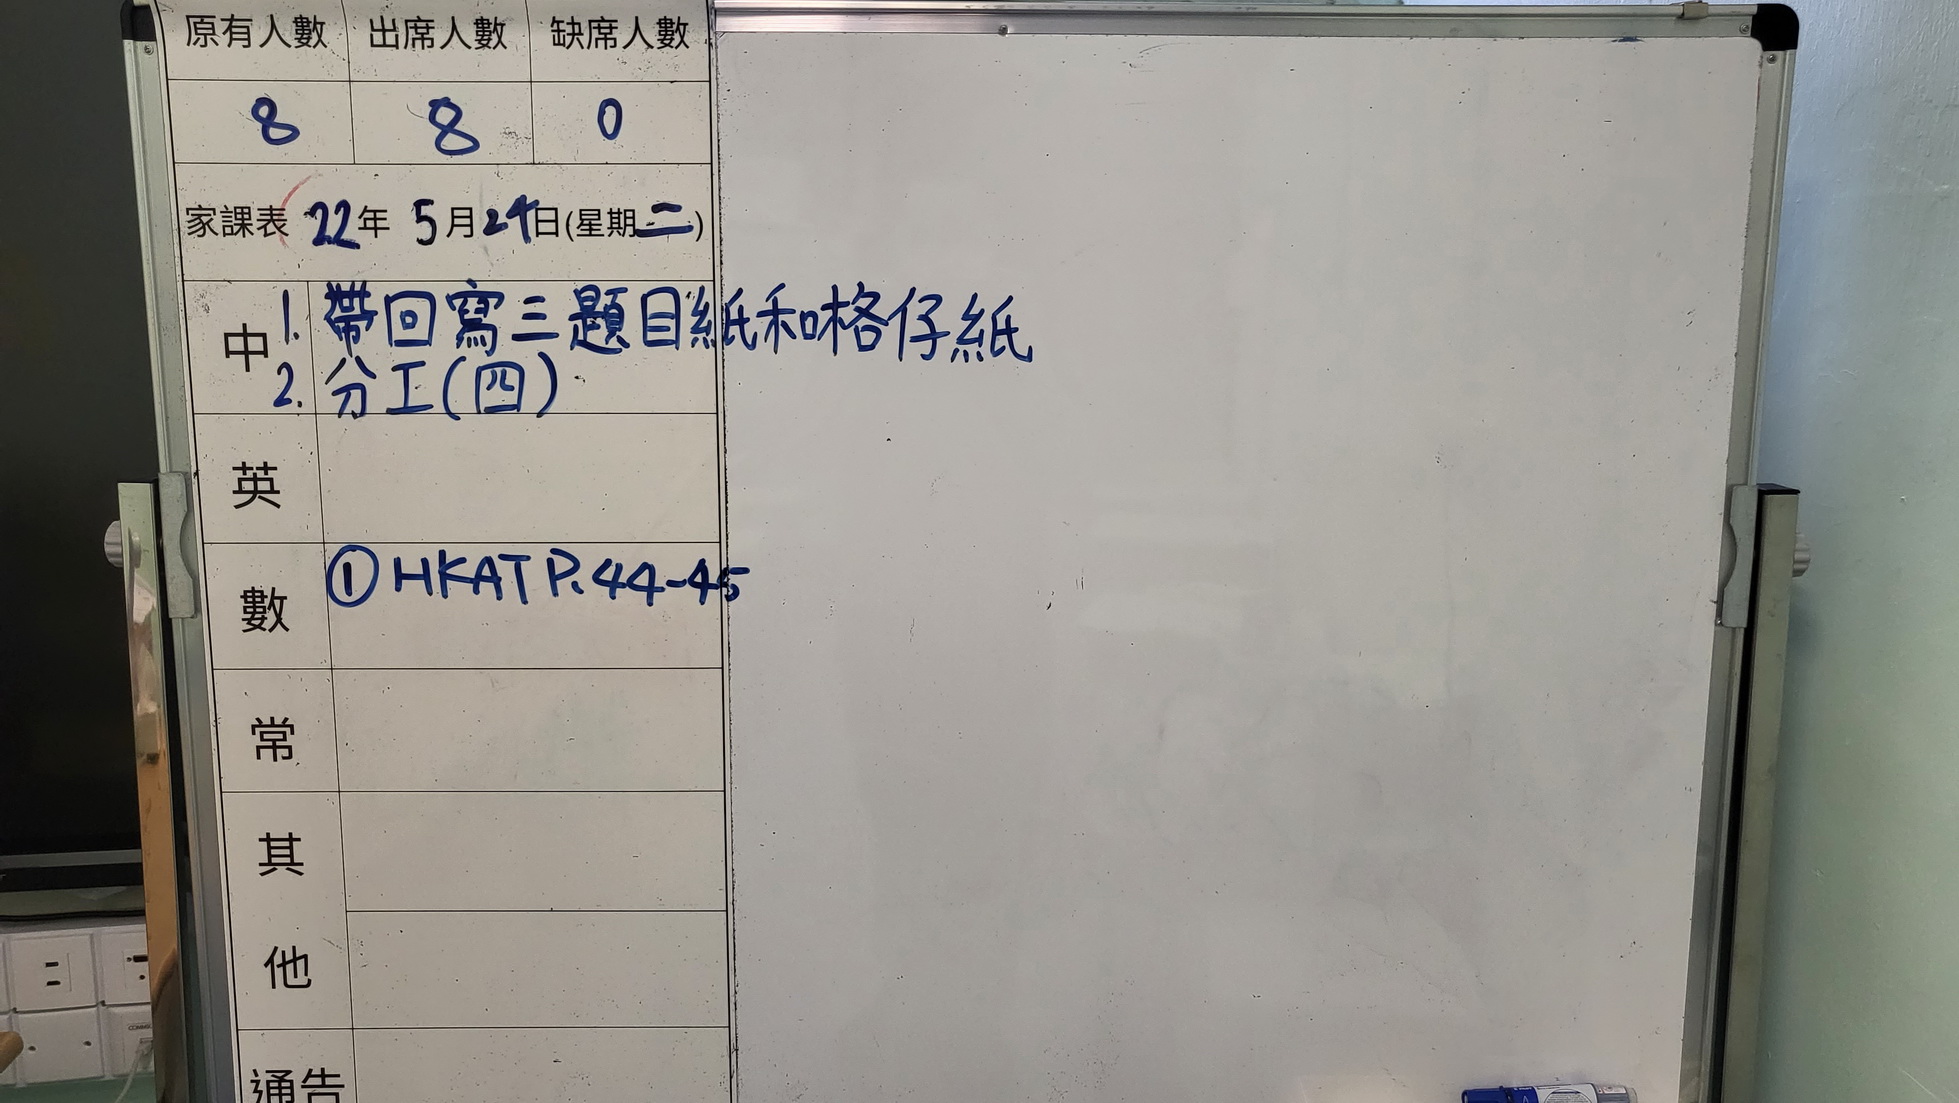 原有人數 出席人數 缺席人數
8 8 0
家課表 22年 5月24日(星期二)
中 1. 帶回寫三題目紙和格仔紙
2. 分工(四)
英
數 ① HKAT P.44-45
常
其
他
通告